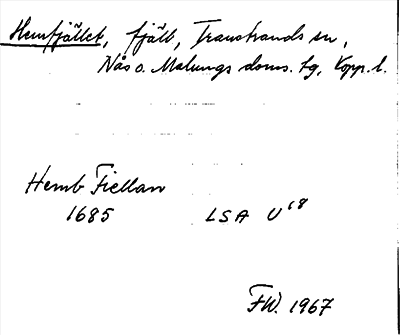 Hemfjället, fjäll, Transtrands sn,
Nås o. Malungs doms. tg, Kopp. l.
Hemb Fiellan
1685 LSA U18
FW. 1967